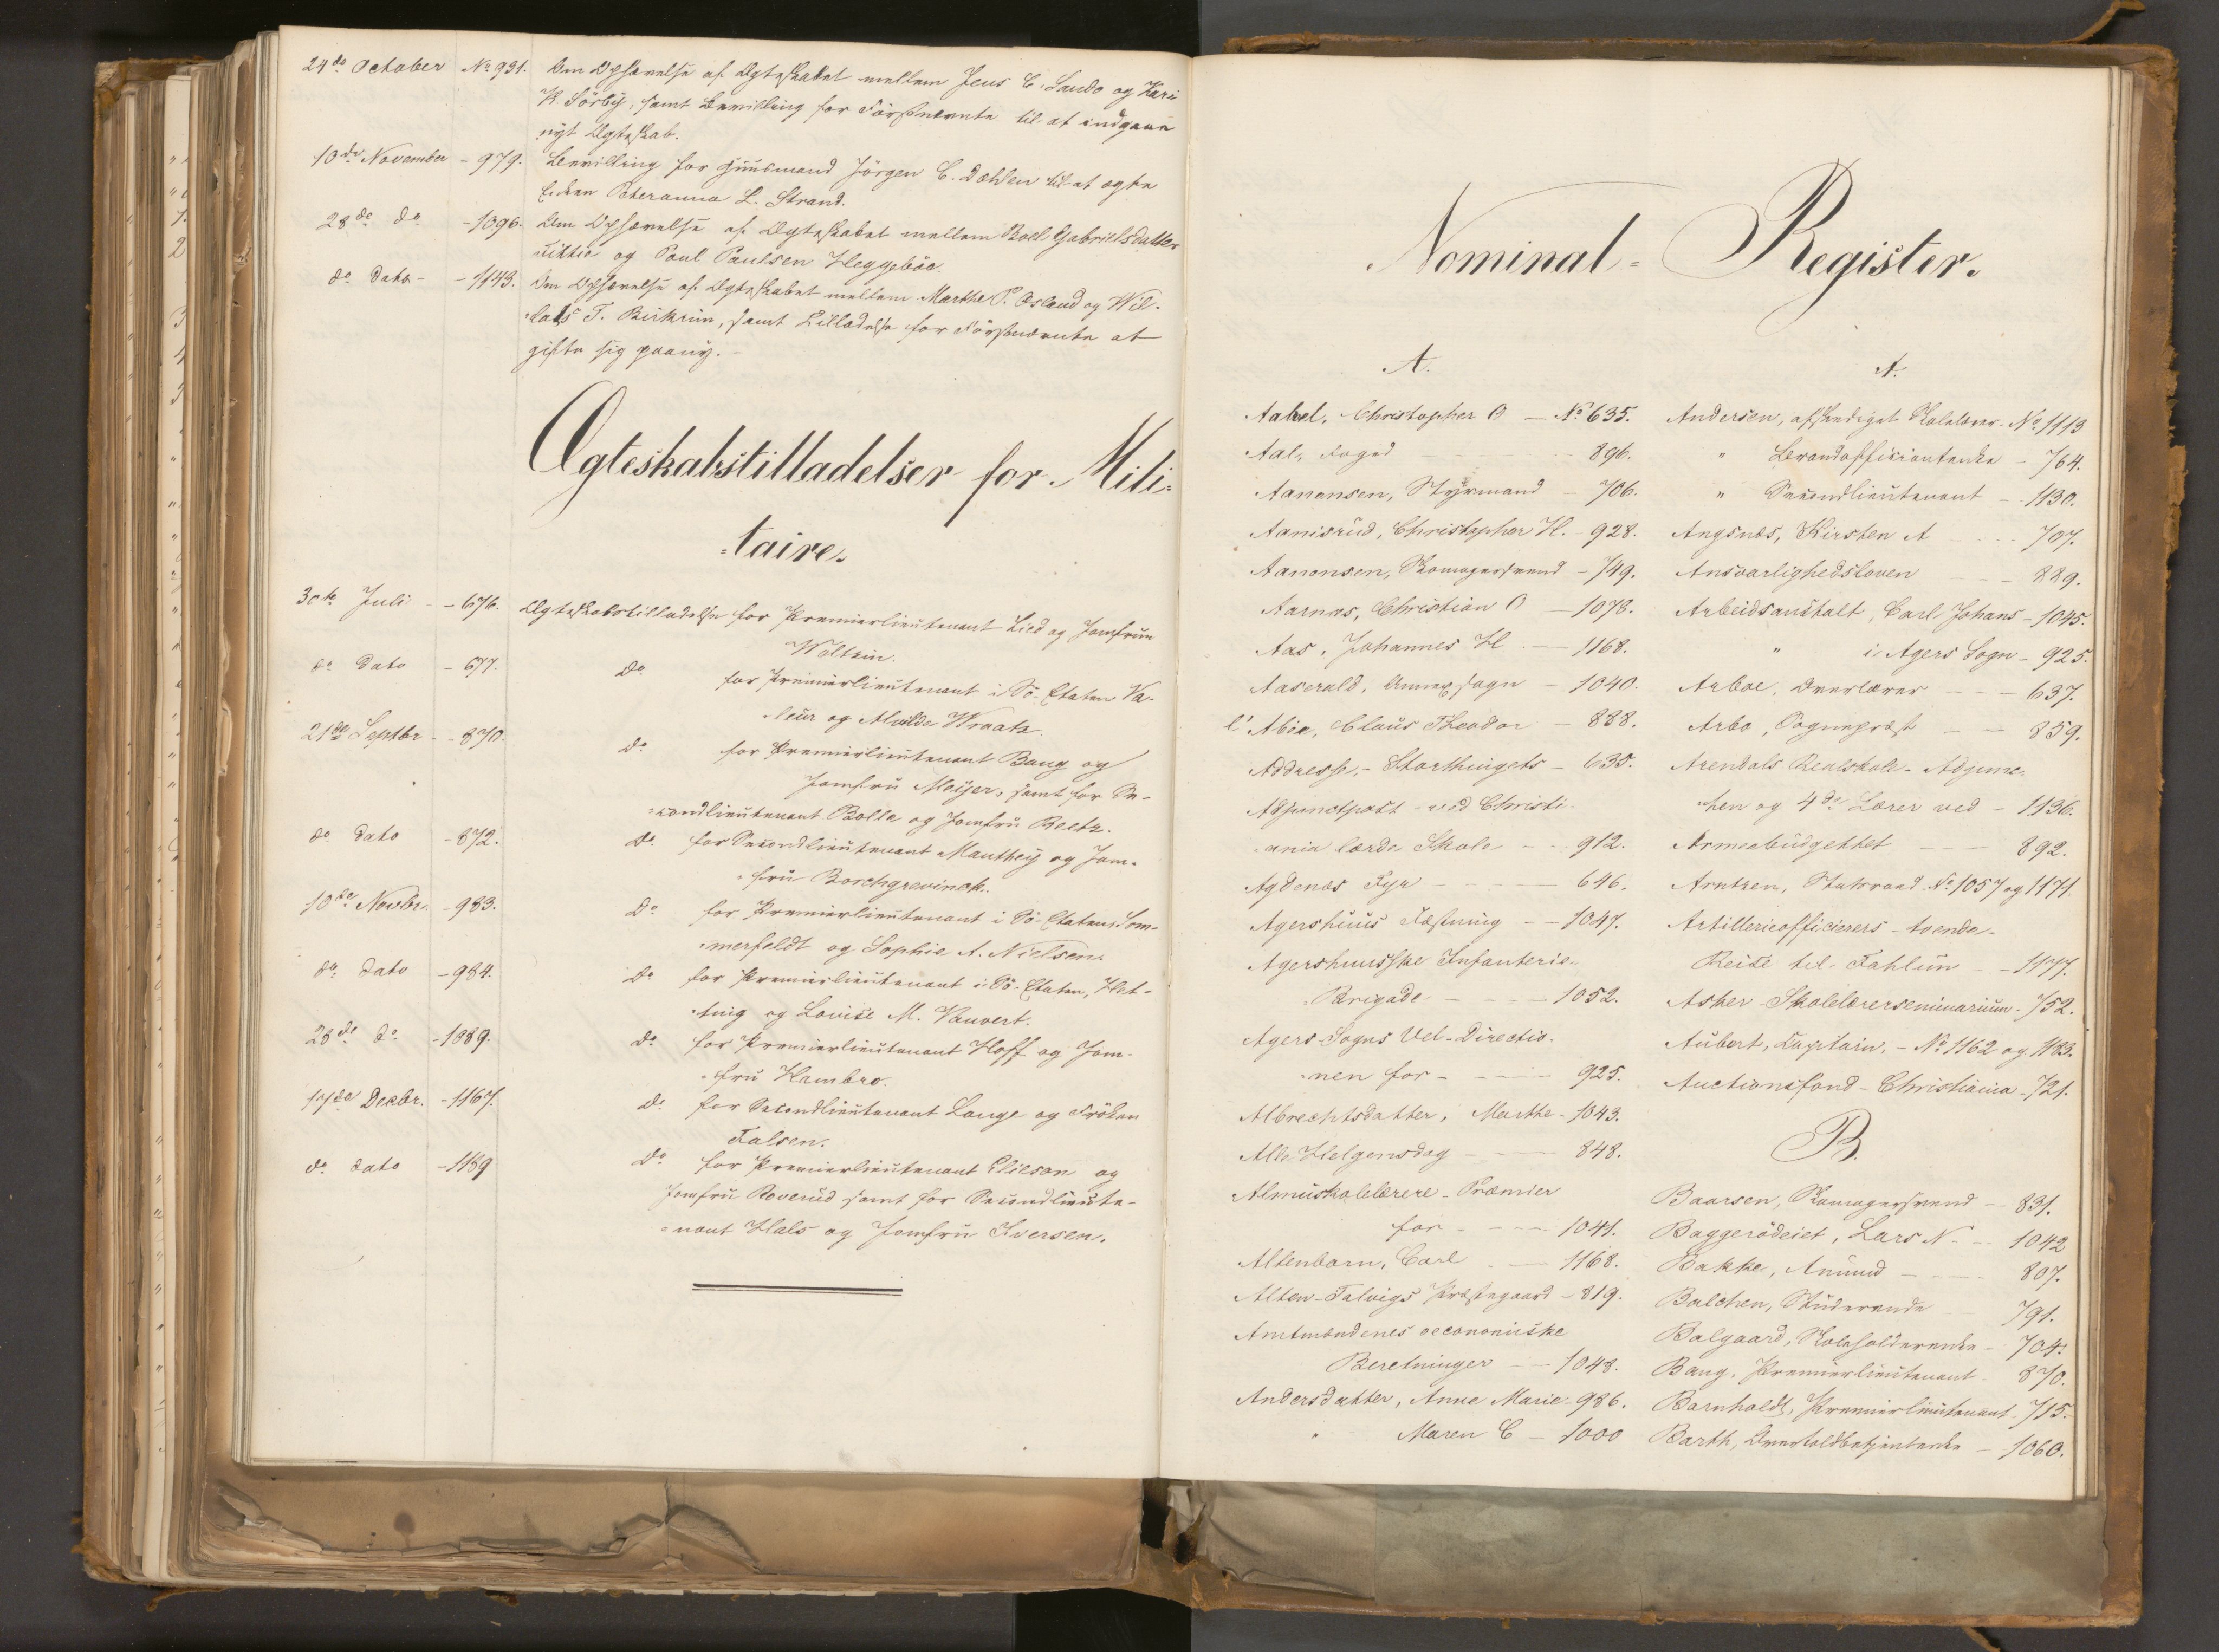 24de October No 931. Om Ophævelse af Ægteskabet mellem Jens C. Sando og Kari
K. Sörby, samt Bevilling for Förstnævnte til at indgaae
nyt Ægteskab.
10de November - 979. Bevilling for Huusmand Jörgen C. Dahlen til at ægte
Enken Peteranna L. Strand.
28de do - 1096. Om Ophævelse af Ægteskabet mellem Boel Gabrielsdatter
og Poul Paulsen Heggeböe.
do dato - - 1143. Om Ophævelse af Ægteskabet mellem Marthe P. Osland og Wil-
T. Birkrim, samt Tilladelse for Förstnævnte at
gifte sig paany. -
Ægteskabstilladelser for Mili-
-taire.
30te Juli - 676. Ægteskabstilladelse for Premierlieutenant Lied og Jomfrue
Woltzin.
do dato - 677. do for Premierlieutenant i Sö-Etaten Va-
-leur og Alvilde Wraatz.
21de Septbr - 870. do for Premierlieutenant Bang og
Jomfru Meijer, samt for Se-
-condlieutenant Bolle og Jomfru Reetz.
do dato - 872. do for Secondlieutenant Manthey og Jom-
-fru Borchgrevinck.
10de Novbr. - 983. do for Premierlieutenant i Sö-Etaten Som-
-merfeldt og Sophie A. Nielsen.
do dato - 984. do for Premierlieutenant i Sö-Etaten, Het-
-ting og Lovise M. Vauvert.
28de do - 1089. do for Premierlieutenant Hoff og Jom-
-fru Hambro.
17de Decbr. - 1167. do for Secondlieutenant Lange og Fröken
Falsen.
do dato - 1189 do for Premierlieutenant Elieson og
Jomfru Roverud samt for Secondlieute-
-nant Hals og Jomfru Iversen.
Nominal-Register.
A.
Aabel, Christopher O - No 635.
Aal, Foged 896.
Aanonsen, Styrmand - 706.
Aanisrud, Christopher H. - 928.
Aanonsen, Skomagersvend - 749.
Aarnæs, Christian O - 1078.
Aas, Johannes H. - 1168.
Aaserald, Annexsogn - 1040.
l'Abée, Claus Theodor - 888.
Addresse, - Storthingets - 635.
Adjunctpost - ved Christi-
-ania lærde Skole - - 912.
Agdenæs Fyr - - - 646.
Agershuus Fæstning - - 1047.
Agershuusske Infanterie-
-Brigade - - - 1052.
Agers Sogns Vel-Directio-
-nen for - - - 925.
Albrechtsdatter, Marthe - 1043.
Alle Helgensdag - - - 848.
Almuskolelærere - Præmier
for - - - 1041.
Altenborn, Carl - - 1168.
Alten-Talvigs Præstegaard - 819.
Amtmændenes oeconomiske
Beretninger - - 1048.
Andersdatter, Anne Marie - 986.
" Maren C - 1000
A.
Andersen, afskediget Skolelærer - No 1113
" Brandofficiantenke - 764.
" Secondlieutenant - - 1130.
Angsnæs, Kirsten A - - - 707.
Ansvarlighedsloven - - - 889.
Arbeidsanstalt, Carl Johans - 1045.
" i Agers Sogn - 925.
Arboe, Overlærer - - - 637.
Arbo, Sognepræst - - 859.
Arendals Realskole - Adjunc-
-ten og 4de Lærer ved - 1136.
Armeebudgettet - - - 892.
Arntzen, Statsraad. No 1057 og 1171.
Artillerieofficierers - toende-
Reise til Fahlun - - 1177.
Asker Skolelærerseminarium - 752.
Aubert, Capitain, - No 1162 og 1183.
Auctionsfond - Christiania - 721.
B.
Baarsen, Skomagersvend - - 831.
Baggerödeiet, Lars N. - - 1042
Bakke, Amund - - - 807.
Balchen, Studerende - - 791.
Balgaard, Skoleholderenke - 704.
Bang, Premierlieutenant - 870.
Barnholdt, Premierlieutenant - 715.
Barth, Overtoldbetjentenke - 1060.